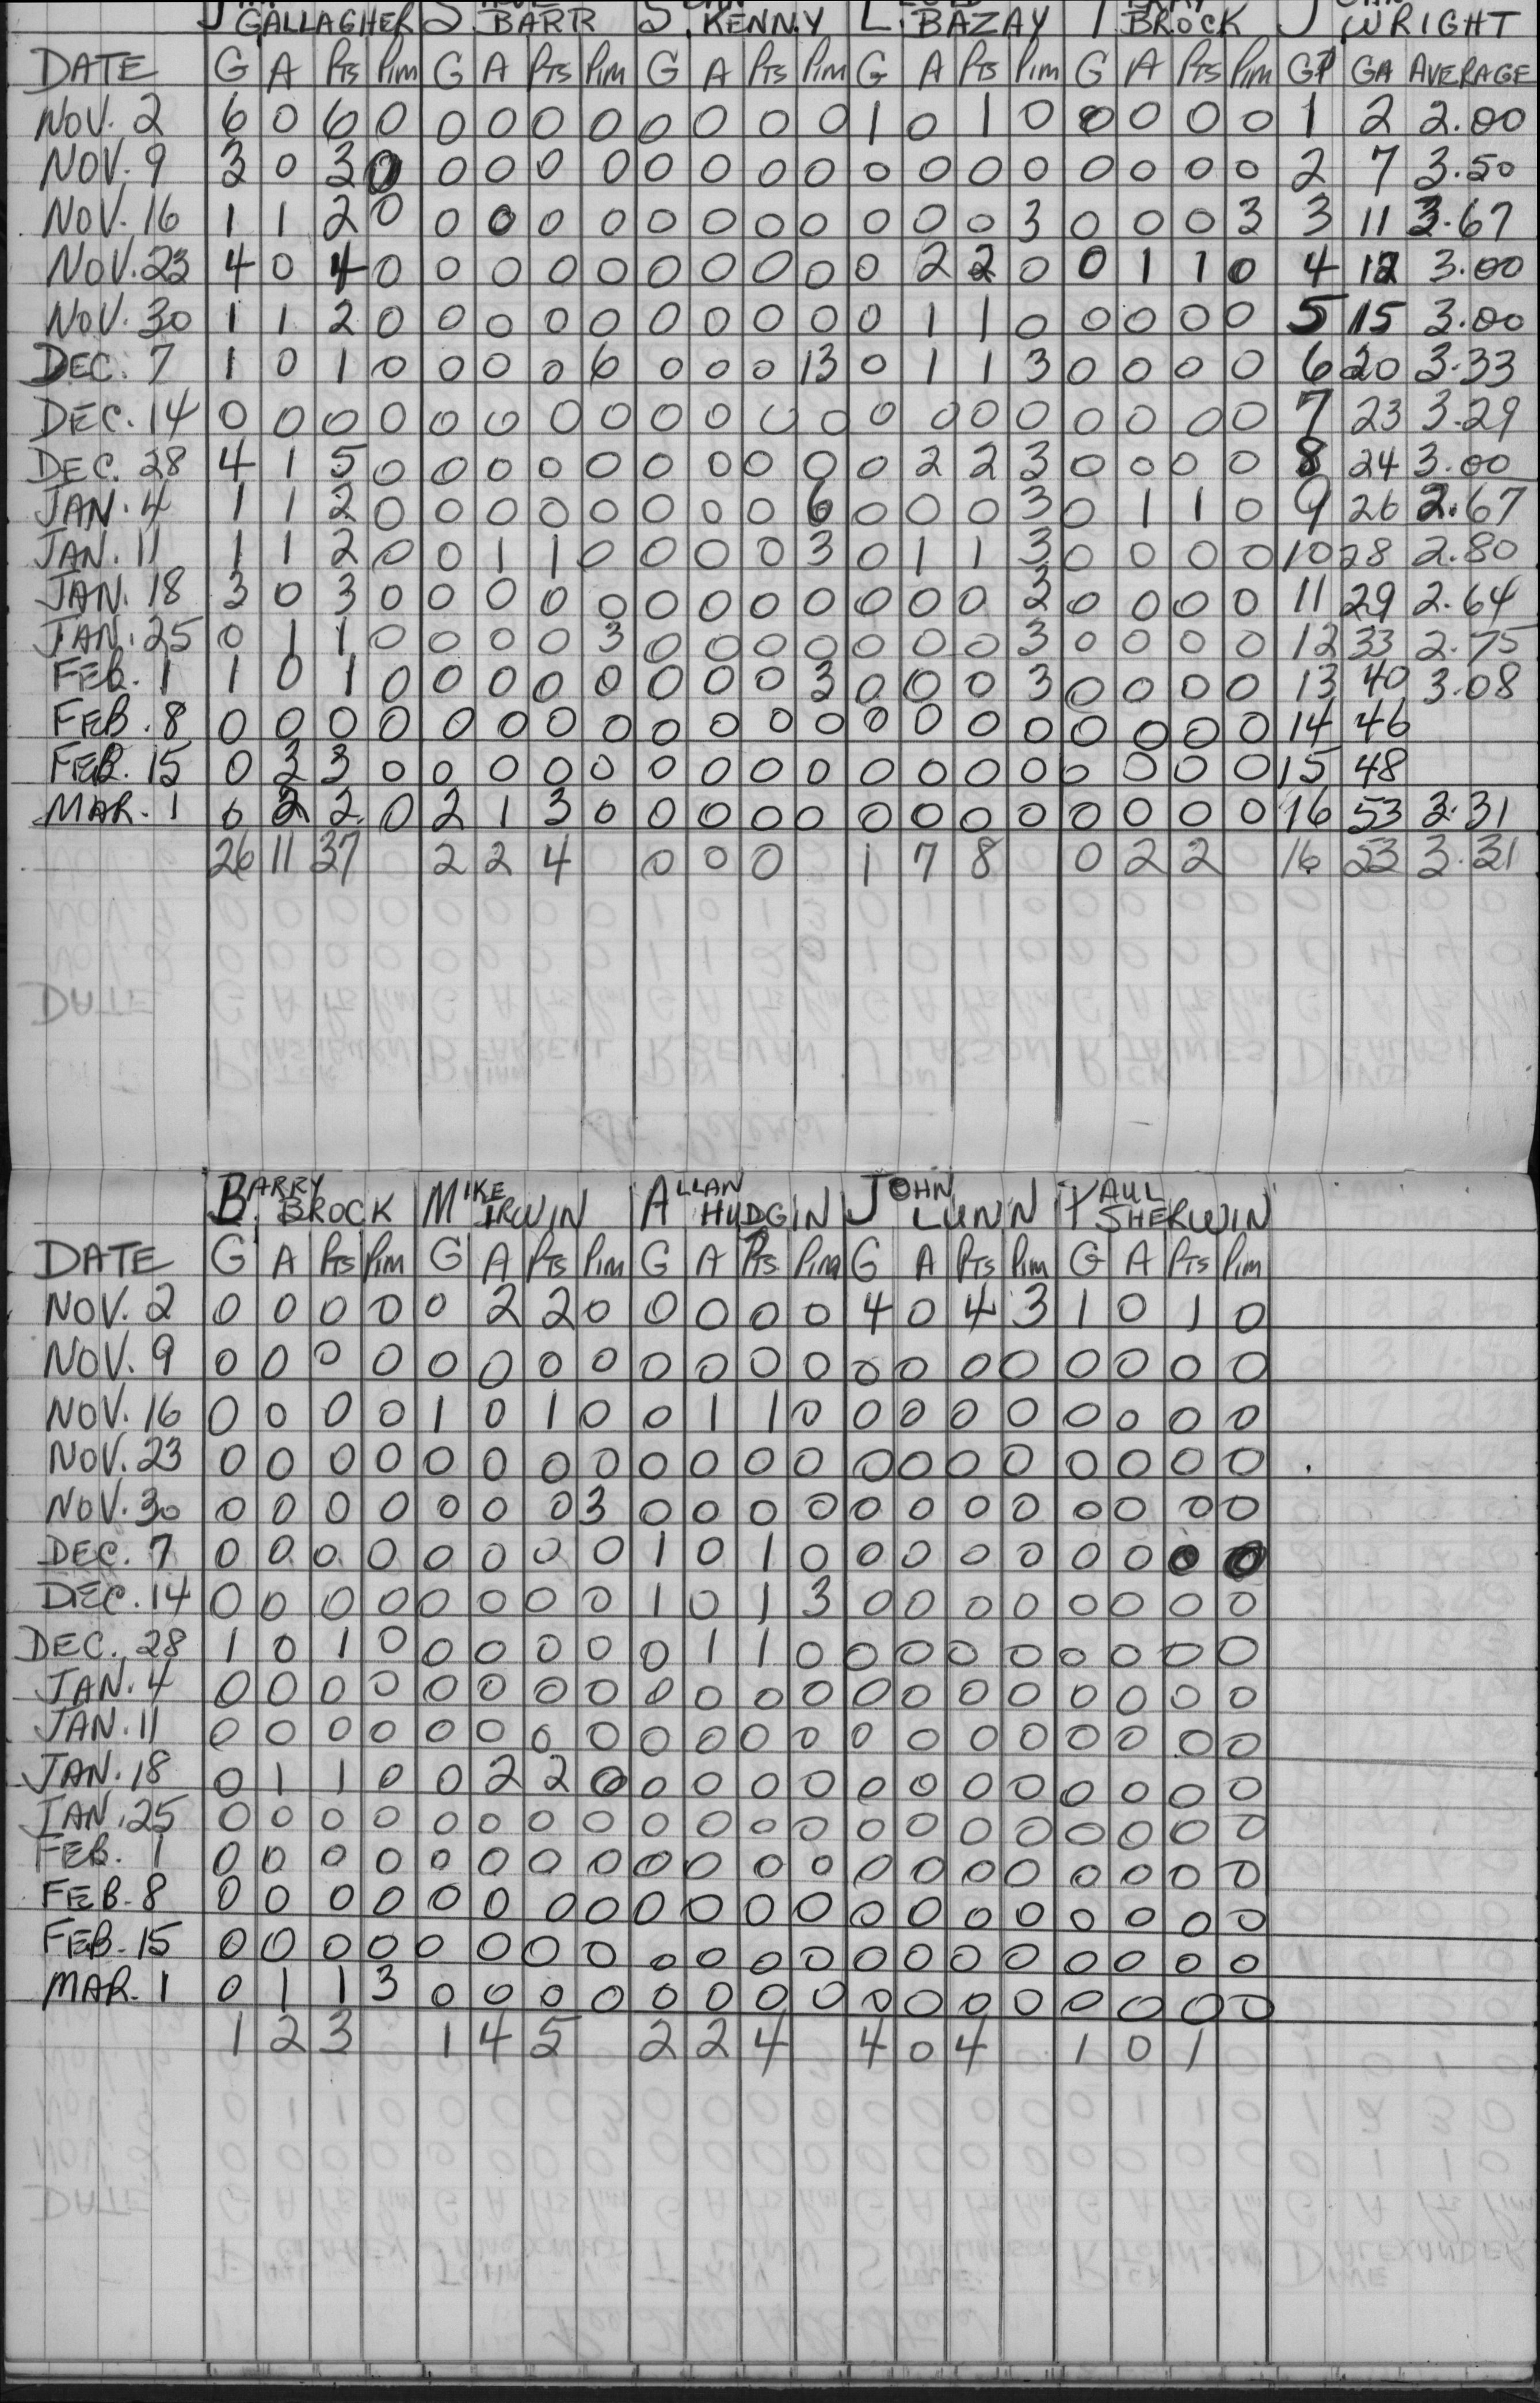 GALLAGHER S. BARR S. KENNY L. BAZAY T. BROCK J. WRIGHT
DATE G A Pts Pim G A Pts Pim G A Pts Pim G A Pts Pim G A Pts Pim GP GA AVERAGE
NOV. 2 6 0 6 0 0 0 0 0 0 0 0 0 1 0 1 0 0 0 0 0 1 2 2.00
NOV. 9 3 0 3 0 0 0 0 0 0 0 0 0 0 0 0 0 0 0 0 0 2 7 3.50
NOV. 16 1 1 2 0 0 0 0 0 0 0 0 0 0 0 0 3 0 0 0 3 3 11 3.67
NOV. 23 4 0 4 0 0 0 0 0 0 0 0 0 0 2 2 0 0 1 1 0 4 12 3.00
NOV. 30 1 1 2 0 0 0 0 0 0 0 0 0 0 1 1 0 0 0 0 0 5 15 3.00
DEC. 7 1 0 1 0 0 0 0 6 0 0 0 13 0 1 1 3 0 0 0 0 6 20 3.33
DEC. 14 0 0 0 0 0 0 0 0 0 0 0 0 0 0 0 0 0 0 0 0 7 23 3.29
DEC. 28 4 1 5 0 0 0 0 0 0 0 0 0 0 2 2 3 0 0 0 0 8 24 3.00
JAN. 4 1 1 2 0 0 0 0 0 0 0 0 6 0 0 0 3 0 1 1 0 9 26 2.67
JAN. 11 1 1 2 0 0 1 1 0 0 0 0 3 0 1 1 3 0 0 0 0 10 28 2.80
JAN. 18 3 0 3 0 0 0 0 0 0 0 0 0 0 0 0 3 0 0 0 0 11 29 2.64
JAN. 25 0 1 1 0 0 0 0 3 0 0 0 0 0 0 0 3 0 0 0 0 12 33 2.75
FEB. 1 1 0 1 0 0 0 0 0 0 0 0 3 0 0 0 3 0 0 0 0 13 40 3.08
FEB. 8 0 0 0 0 0 0 0 0 0 0 0 0 0 0 0 0 0 0 0 0 14 46
FEB. 15 0 3 3 0 0 0 0 0 0 0 0 0 0 0 0 0 0 0 0 0 15 48
MAR. 1 0 2 2 0 2 1 3 0 0 0 0 0 0 0 0 0 0 0 0 0 16 53 3.31
26 11 37 2 2 4 0 0 0 1 7 8 0 2 2 16 53 3.31
BARRY BROCK MIKE IRWIN ALLAN HUDGIN JOHN LUNN PAUL SHERWIN
DATE G A Pts Pim G A Pts Pim G A Pts Pim G A Pts Pim G A Pts Pim
NOV. 2 0 0 0 0 0 2 2 0 0 0 0 0 4 0 4 3 1 0 1 0
NOV. 9 0 0 0 0 0 0 0 0 0 0 0 0 0 0 0 0 0 0 0 0
NOV. 16 0 0 0 0 1 0 1 0 0 1 1 0 0 0 0 0 0 0 0 0
NOV. 23 0 0 0 0 0 0 0 0 0 0 0 0 0 0 0 0 0 0 0 0
NOV. 30 0 0 0 0 0 0 0 3 0 0 0 0 0 0 0 0 0 0 0 0
DEC. 7 0 0 0 0 0 0 0 0 1 0 1 0 0 0 0 0 0 0 0 0
DEC. 14 0 0 0 0 0 0 0 0 1 0 1 3 0 0 0 0 0 0 0 0
DEC. 28 1 0 1 0 0 0 0 0 0 1 1 0 0 0 0 0 0 0 0 0
JAN. 4 0 0 0 0 0 0 0 0 0 0 0 0 0 0 0 0 0 0 0 0
JAN. 11 0 0 0 0 0 0 0 0 0 0 0 0 0 0 0 0 0 0 0 0
JAN. 18 0 1 1 0 0 2 2 0 0 0 0 0 0 0 0 0 0 0 0 0
JAN. 25 0 0 0 0 0 0 0 0 0 0 0 0 0 0 0 0 0 0 0 0
FEB. 1 0 0 0 0 0 0 0 0 0 0 0 0 0 0 0 0 0 0 0 0
FEB. 8 0 0 0 0 0 0 0 0 0 0 0 0 0 0 0 0 0 0 0 0
FEB. 15 0 0 0 0 0 0 0 0 0 0 0 0 0 0 0 0 0 0 0 0
MAR. 1 0 1 1 3 0 0 0 0 0 0 0 0 0 0 0 0 0 0 0 0
1 2 3 1 4 5 2 2 4 4 0 4 1 0 1